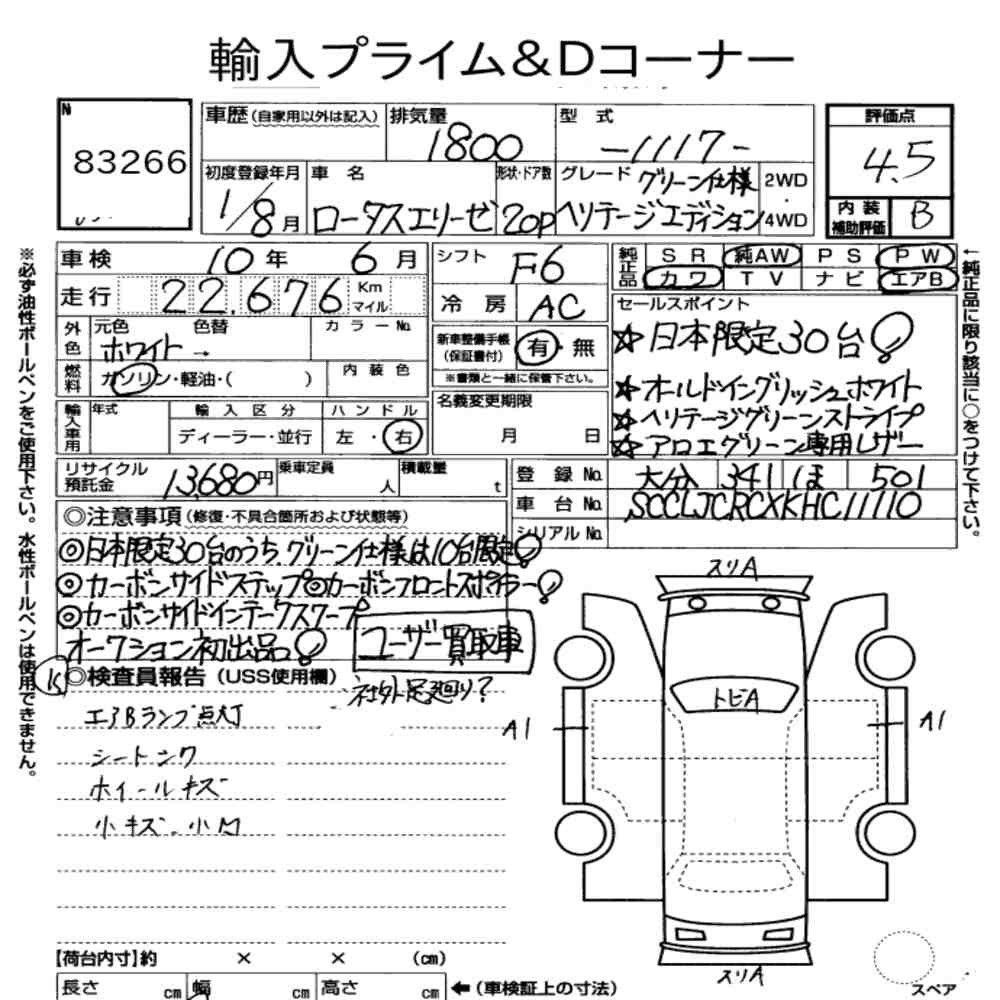 輸入プライム&Dコーナー
N
83266
車歴(自家用以外は記入)
排気量
1800
型 式
-1117-
評価点
4.5
内装
補助評価
B
初度登録年月
1/8月
車 名
ロータスエリーゼ
形状・ドア数
2OP
グレード
グリーン仕様
ヘリテージエディション
2WD
4WD
車検 10年 6月
走行 22,676 Km
マイル
シフト
F6
冷 房 AC
純正品
SR 純AW PS PW
カワ TV ナビ エアB
外色
元色 色替
ホワイト →
カラーNo.
燃料
ガソリン・軽油・( )
内装色
新車整備手帳
(保証書付)
有・無
※書類と一緒に保管下さい。
セールスポイント
☆日本限定30台!
☆オールドイングリッシュホワイト
☆ヘリテージグリーンストライプ
☆アロエグリーン専用レザー
輸入車用
年式
輸入区分
ディーラー・並行
ハンドル
左・右
名義変更期限
月 日
リサイクル
預託金
13,680円
乗車定員
人
積載量
t
登録No. 大分 341 ほ 501
車台No. SCCLJCRCXKHC11110
シリアルNo.
◎注意事項(修復・不具合箇所および状態等)
◎日本限定30台のうち、グリーン仕様は10台限定!
◎カーボンサイドステップ◎カーボンフロントスポイラー!
◎カーボンサイドインテークスクープ
オークション初出品!
ユーザー買取車
◎検査員報告(USS使用欄)
社外足廻り?
エアBランプ点灯
シートシワ
ホイールキズ
小キズ。小凹
スリA
トビA
A1
A1
スリA
スペア
【荷台内寸】約 × × (cm)
長さ cm 幅 cm 高さ cm
←(車検証上の寸法)
※必ず油性ボールペンをご使用下さい。水性ボールペンは使用できません。
←純正品に限り該当に○をつけて下さい。